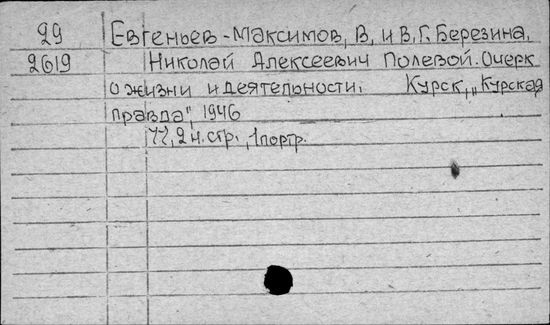 29 Евгеньев-Максимов, В. и В.Г. Березина.
2619 Николай Алексеевич Полевой. Очерк
о жизни и деятельности. Курск, „Курская
правда", 1946
77, 2 н. стр., 1 портр.